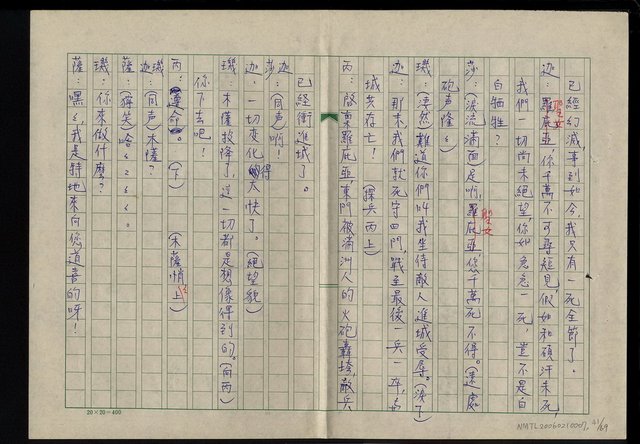 已經幻滅,事到如今,我只有一死全節了。
迦:羅庇亞,你千萬不可尋短見,假如和碩汗未死,
聖女
我們一切尚未絕望,你如急急一死,豈不是白
白牺牲?
莎:(淚流滿面)是啊,羅庇亞,您千萬死不得。(遠處
聖女
砲声隆々)
璣:(淒然)難道你們叫我坐待敵人進城受辱。(淚下)
迦:那末,我們就死守四門,戰至最後一兵一卒,与
城共存亡!(探兵丙上)
丙:啟稟羅庇亞,東門被滿洲人的火砲轟垮,敵兵
已經衝進城了。
迦莎:(同声)啊!
迦:一切变化得太快了。(絕望貌)
璣:木薩投降了,這一切都是想像得到的。(向丙)
你下去吧!
丙:遵命。(下)(木薩悄々上)
璣迦:(同声)木薩?
薩:(獰笑)哈々々々。
璣:你來做什麼?
薩:嘿々,我是特地來向您道喜的呀!
20×20=400
NMTL20060210007, 41/69